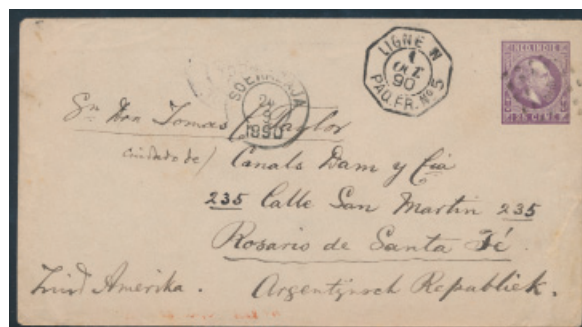 NED. INDIE
LIGNE N
1
OCT
90
PAQ. FR. Nº 5
SOERABAJA
24
9
1890
Sn Don Tomas Taylor
cuidado de / Canals Dam y Cia
235 Calle San Martin 235
Rosario de Santa Fé.
Zuid Amerika. Argentijnsch Republiek.